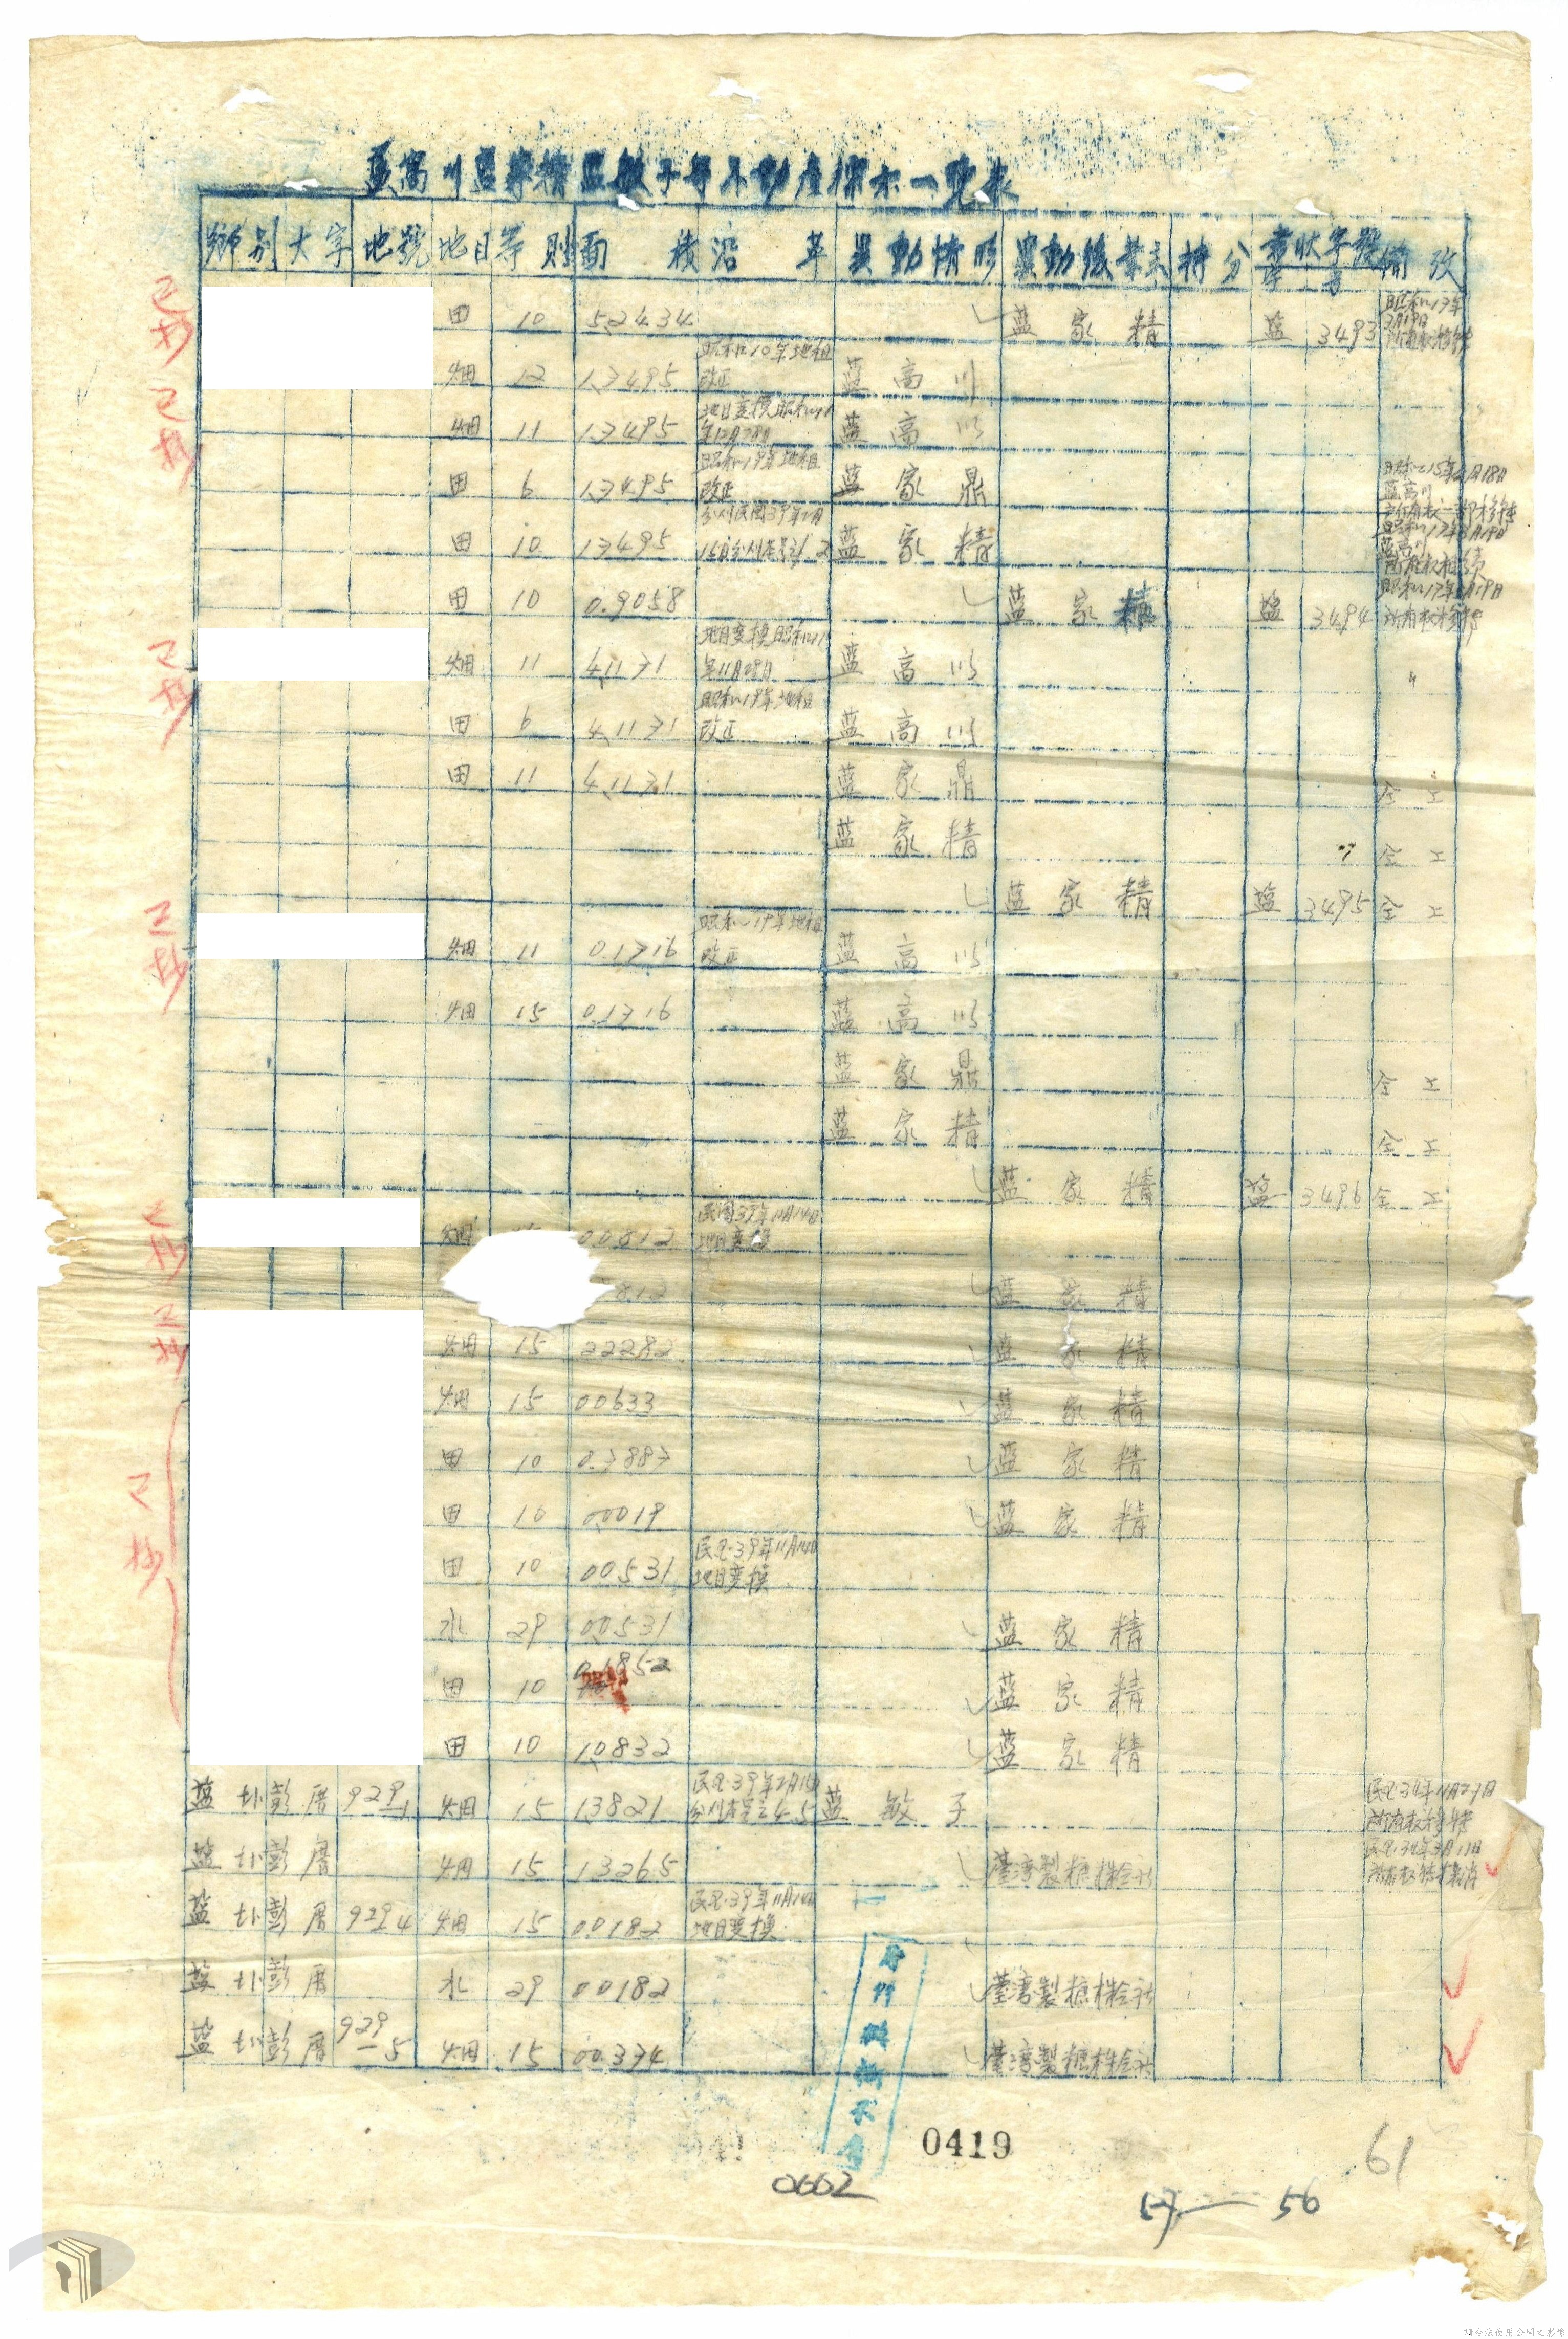 藍高川藍家精藍敏子等不動產標示一覽表
鄉別 大字 地號 地目 等則 面積 沿革 異動情形 異動後業主 持分 書狀字號 備攷
田 10 5.2434 藍家精 鹽 3493 昭和17年3月19日所有權移轉
畑 12 1.3495 昭和10年地租改正 藍高川
畑 11 1.3495 地目変換昭和11年12月28日 藍高川
田 6 1.3495 昭和19年地租改正 藍家鼎 昭和15年2月18日藍高川
田 10 1.3495 分割民國39年2月15日 藍家精 昭和17年3月19日藍高川
田 10 0.9058 藍家精 鹽 3494 昭和17年3月19日所有權移轉
畑 11 4.1171 地目変換昭和11年11月28日 藍高川 〃
田 6 4.1171 昭和19年地租改正 藍高川
田 11 4.1171 藍家鼎 仝上
藍家精 仝上
藍家精 鹽 3495 仝上
畑 11 0.1716 昭和19年地租改正 藍高川
畑 15 0.1716 藍高川
藍家鼎 仝上
藍家精 仝上
藍家精 鹽 3496 仝上
畑 0.0812 民國39年11月14日地目変換
812 藍家精
畑 15 2.2282 藍家精
畑 15 0.0633 藍家精
田 10 0.3883 藍家精
田 10 0.0019 藍家精
田 10 0.0531 民國39年11月14日地目変換
水 29 0.0531 藍家精
田 10 0.1852 藍家精
田 10 1.0832 藍家精
鹽埔 彭厝 929-1 畑 15 1.3821 民國39年2月15日 藍敏子 民國34年11月27日所有權移轉
鹽埔 彭厝 畑 15 1.3265 臺灣製糖株会社 民國36年3月11日
鹽埔 彭厝 929-4 畑 15 0.0182 民國39年11月14日地目変換
鹽埔 彭厝 水 29 0.0182 臺灣製糖株会社
鹽埔 彭厝 929-5 畑 15 0.0374 臺灣製糖株会社
已抄
已抄
已抄
已抄
已抄
已抄
已抄
0419
61
0662
57—56
請合法使用公開之影像